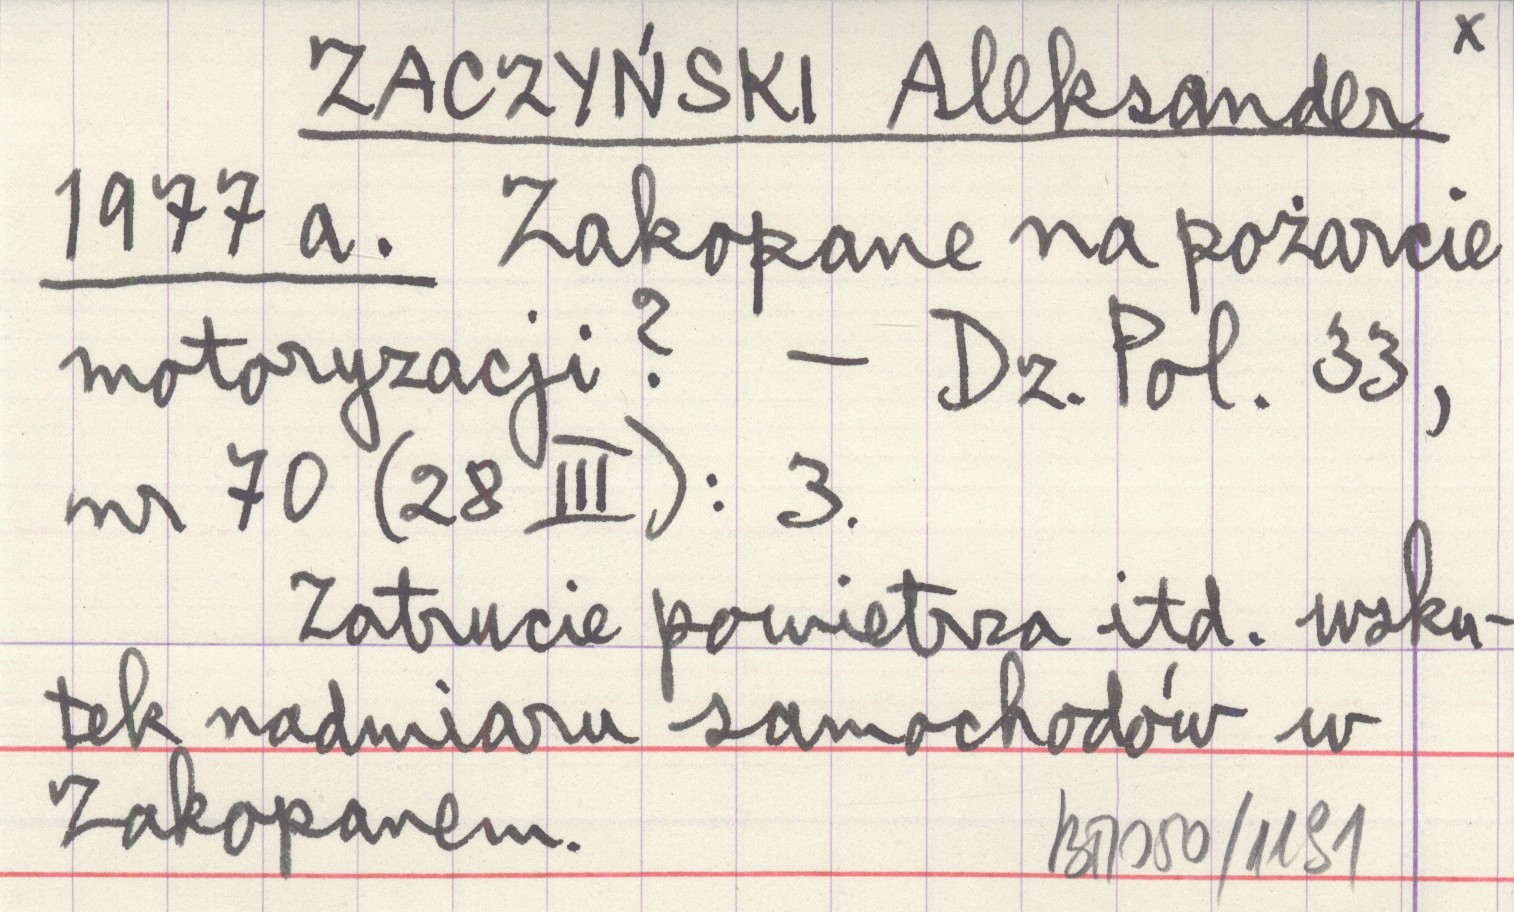 x
ZACZYŃSKI Aleksander
1977 a. Zakopane na pożarcie
motoryzacji? – Dz. Pol. 33,
nr 70 (28 III): 3.
Zatrucie powietrza itd. wsku-
tek nadmiaru samochodów w
Zakopanem.